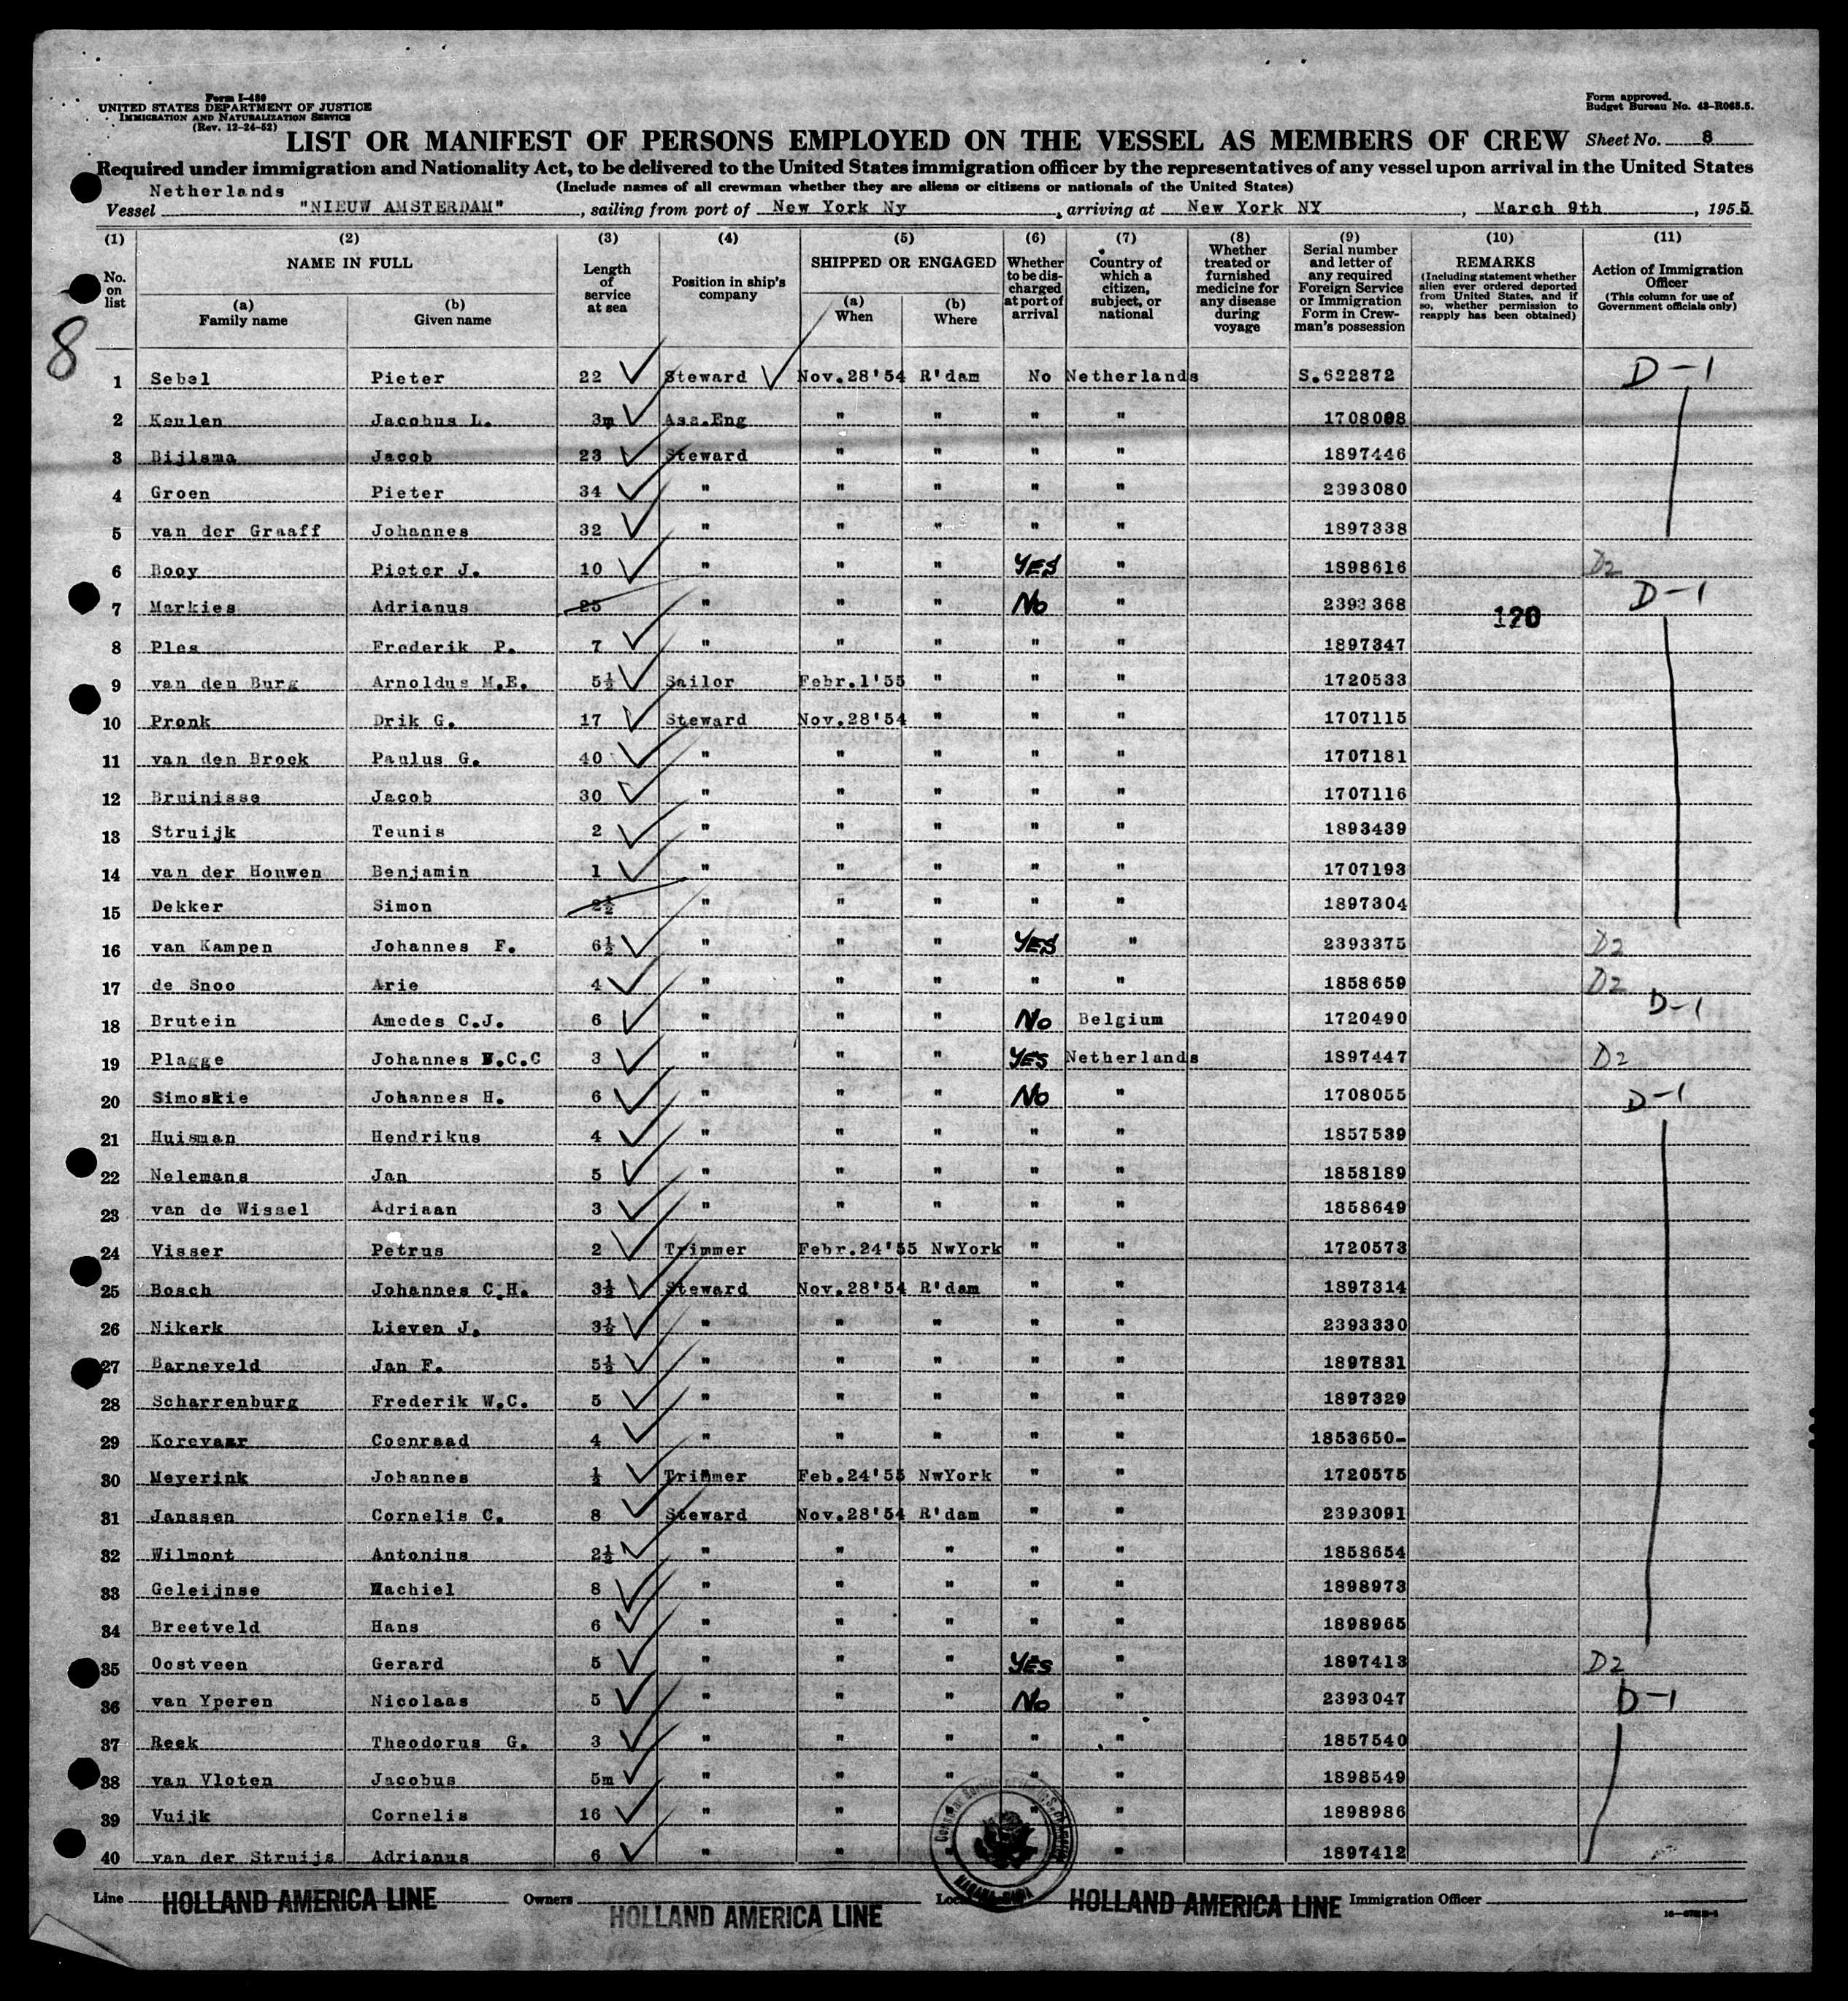 Form I-480
UNITED STATES DEPARTMENT OF JUSTICE
IMMIGRATION AND NATURALIZATION SERVICE
(Rev. 12-24-52)
Form approved.
Budget Bureau No. 43-R065.5.
LIST OR MANIFEST OF PERSONS EMPLOYED ON THE VESSEL AS MEMBERS OF CREW Sheet No. 8
Required under immigration and Nationality Act, to be delivered to the United States immigration officer by the representatives of any vessel upon arrival in the United States
(Include names of all crewman whether they are aliens or citizens or nationals of the United States)
Netherlands
Vessel "NIEUW AMSTERDAM", sailing from port of New York Ny, arriving at New York NY, March 9th, 1955
(1) (2) (3) (4) (5) (6) (7) (8) (9) (10) (11)
No. on list
NAME IN FULL
(a) Family name
(b) Given name
Length of service at sea
Position in ship's company
SHIPPED OR ENGAGED
(a) When
(b) Where
Whether to be discharged at port of arrival
Country of which a citizen, subject, or national
Whether treated or furnished medicine for any disease during voyage
Serial number and letter of any required Foreign Service or Immigration Form in Crewman's possession
REMARKS
(Including statement whether alien ever ordered deported from United States, and if so, whether permission to reapply has been obtained)
Action of Immigration Officer
(This column for use of Government officials only)
8
1 Sebel Pieter 22 Steward Nov.28'54 R'dam No Netherlands S.622872 D-1
2 Keulen Jacobus L. 3m Ass.Eng " " " " 1708088
3 Bijlsma Jacob 23 Steward " " " " 1897446
4 Groen Pieter 34 " " " " " 2393080
5 van der Graaff Johannes 32 " " " " " 1897338
6 Booy Pieter J. 10 " " " YES " 1898616 D2
7 Markies Adrianus 25 " " " No " 2393368 D-1
120
8 Ples Frederik P. 7 " " " " " 1897347
9 van den Burg Arnoldus M.E. 5½ Sailor Febr.1'55 " " " 1720533
10 Pronk Drik G. 17 Steward Nov.28'54 " " " 1707115
11 van den Broek Paulus G. 40 " " " " " 1707181
12 Bruinisse Jacob 30 " " " " " 1707116
13 Struijk Teunis 2 " " " " " 1893439
14 van der Houwen Benjamin 1 " " " " " 1707193
15 Dekker Simon 2½ " " " " " 1897304
16 van Kampen Johannes F. 6½ " " " YES " 2393375 D2
17 de Snoo Arie 4 " " " " " 1858659 D2
18 Brutein Amedes C.J. 6 " " " No Belgium 1720490 D-1
19 Plagge Johannes W.C.C 3 " " " YES Netherlands 1897447 D2
20 Simoskie Johannes H. 6 " " " No " 1708055 D-1
21 Huisman Hendrikus 4 " " " " " 1857539
22 Nelemans Jan 5 " " " " " 1858189
23 van de Wissel Adriaan 3 " " " " " 1858649
24 Visser Petrus 2 Trimmer Febr.24'55 NwYork " " 1720573
25 Bosch Johannes C.H. 3½ Steward Nov.28'54 R'dam " " 1897314
26 Nikerk Lieven J. 3½ " " " " " 2393330
27 Barneveld Jan F. 5½ " " " " " 1897831
28 Scharrenburg Frederik W.C. 5 " " " " " 1897329
29 Korevaar Coenraad 4 " " " " " 1853650-
30 Meyerink Johannes ½ Trimmer Feb.24'55 NwYork " " 1720575
31 Janssen Cornelis C. 8 Steward Nov.28'54 R'dam " " 2393091
32 Wilmont Antonius 2½ " " " " " 1858654
33 Geleijnse Machiel 8 " " " " " 1898973
34 Breetveld Hans 6 " " " " " 1898965
35 Oostveen Gerard 5 " " " YES " 1897413 D2
36 van Yperen Nicolaas 5 " " " No " 2393047 D-1
37 Reek Theodorus G. 3 " " " " " 1857540
38 van Vloten Jacobus 5m " " " " " 1898549
39 Vuijk Cornelis 16 " " " " " 1898986
40 van der Struijs Adrianus 6 " " " " " 1897412
Line HOLLAND AMERICA LINE Owners HOLLAND AMERICA LINE HOLLAND AMERICA LINE Immigration Officer